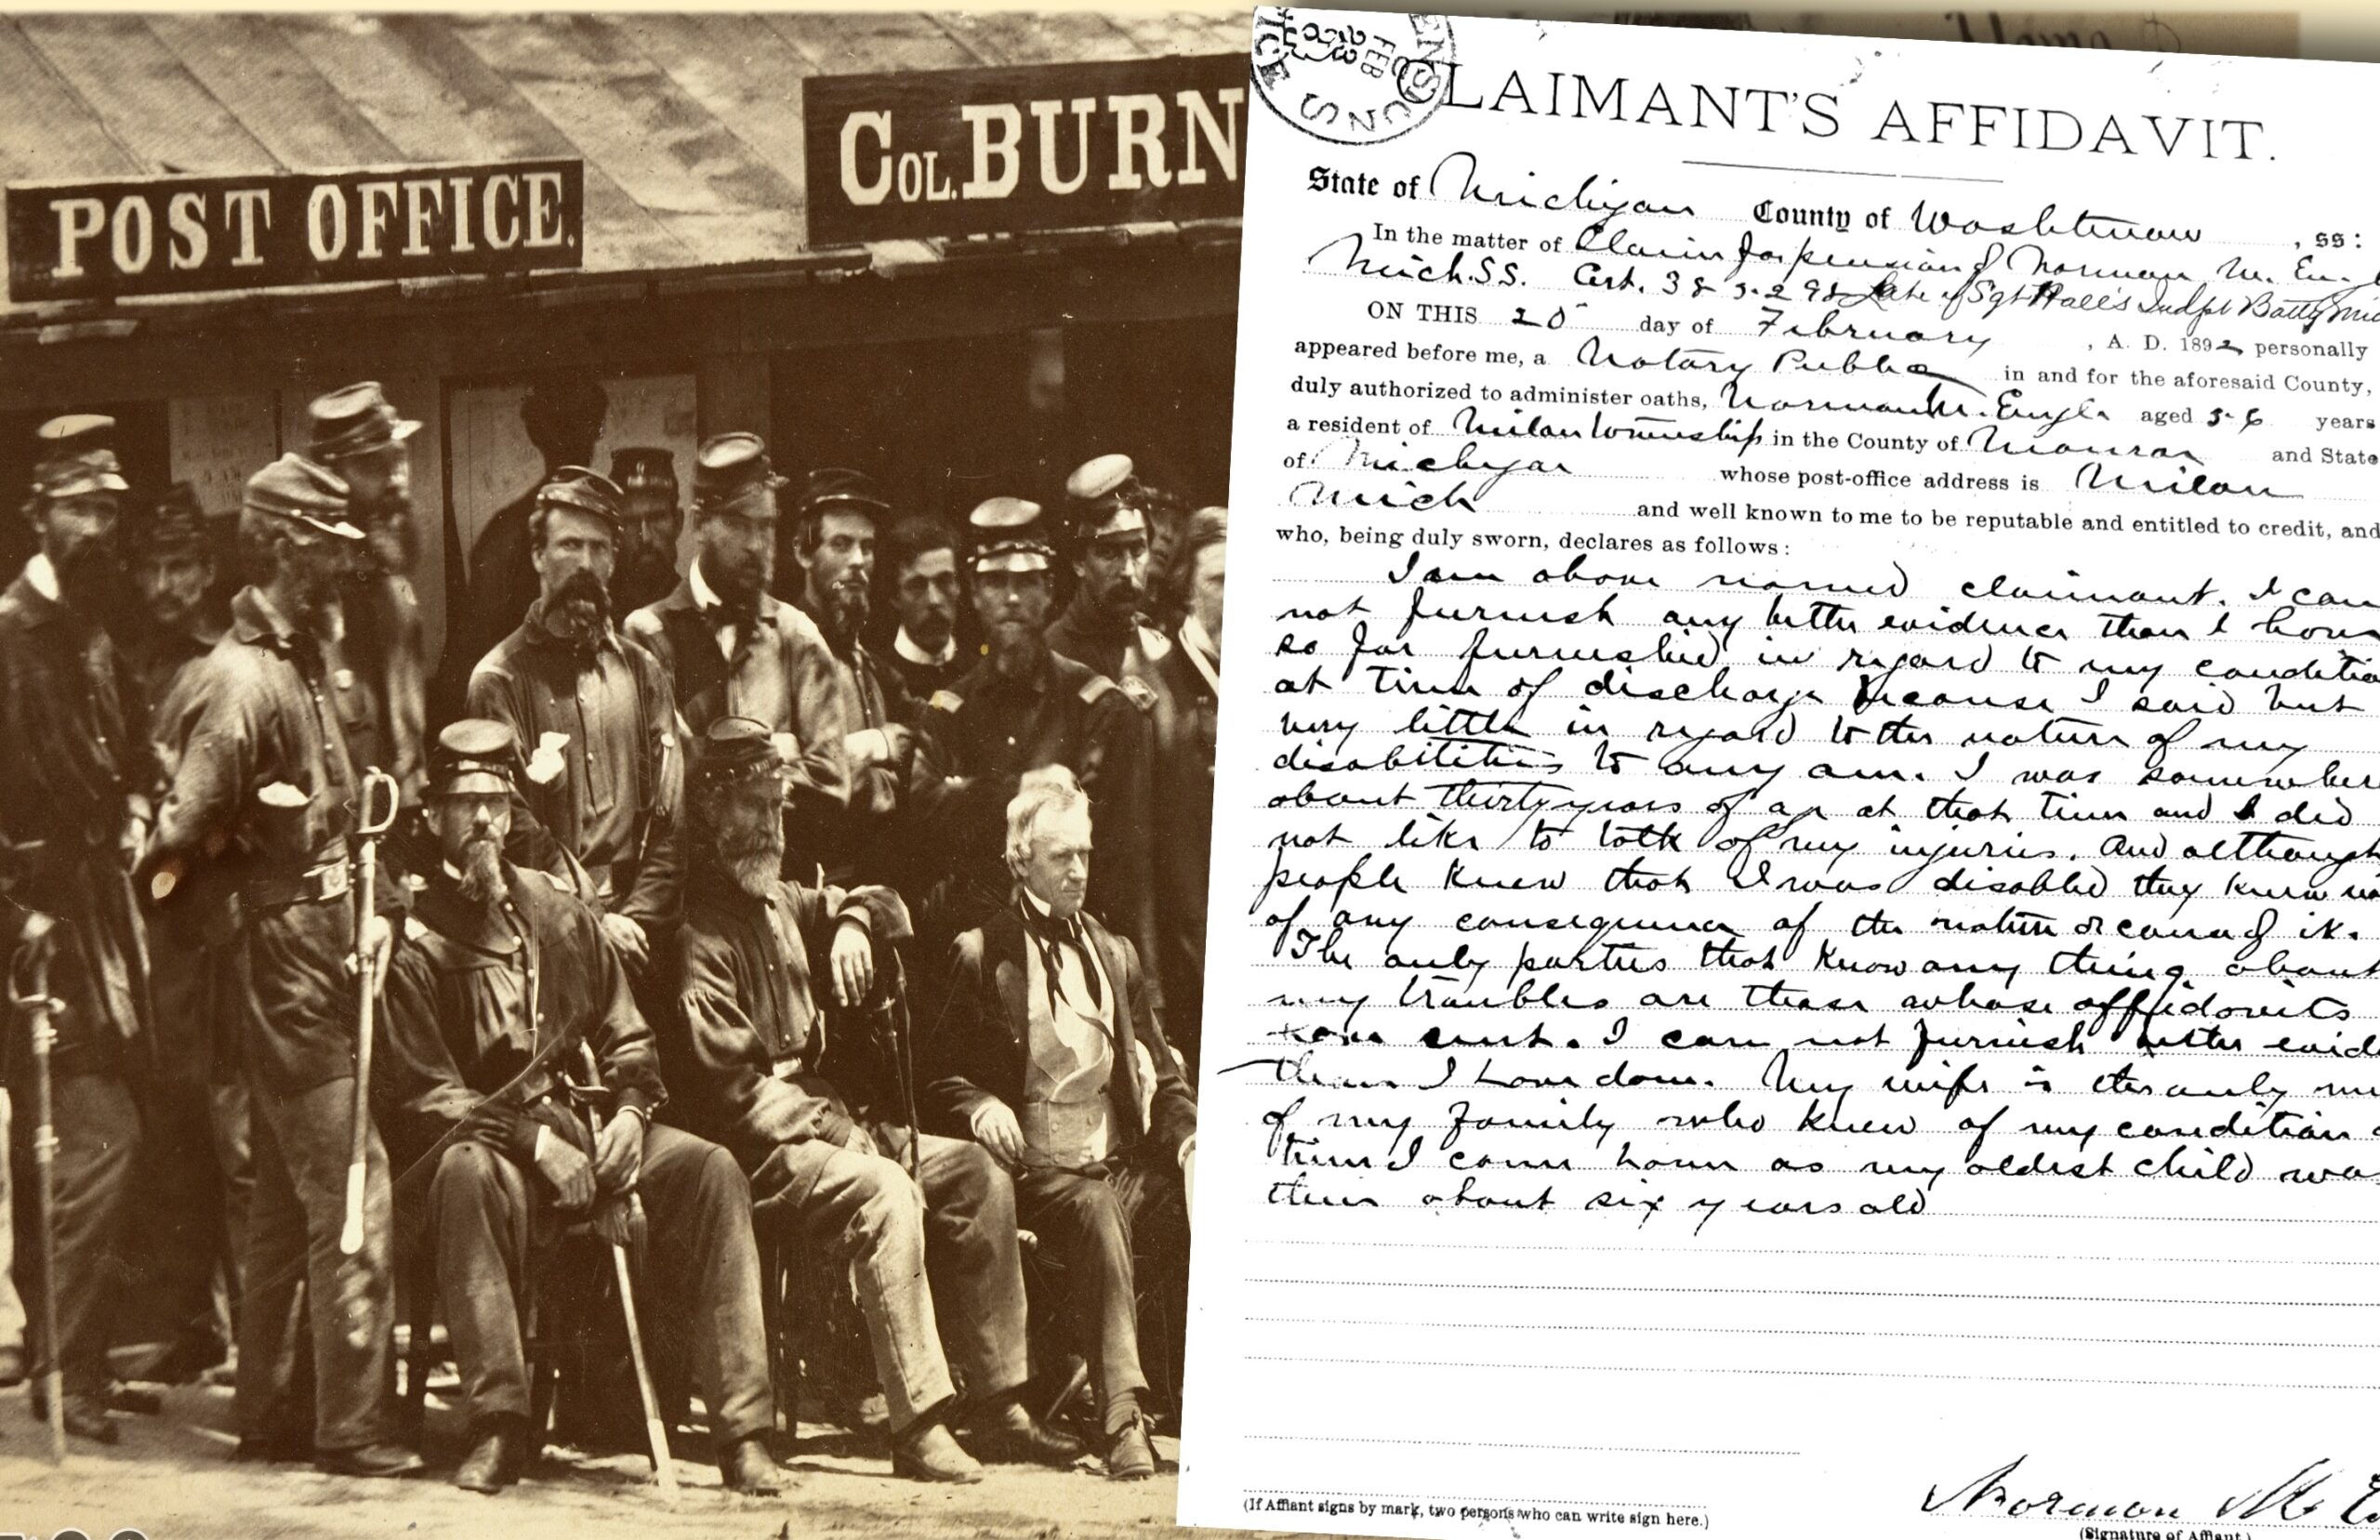 POST OFFICE.
COL. BURN
PENSION
FEB
CLAIMANT'S AFFIDAVIT.
State of Michigan County of Washtenaw , ss:
In the matter of Claim for pension of Norman M.
Mich.S.S. Cert. Late of Sgt Hall's Indpt Batty
ON THIS 25 day of February , A. D. 1892 personally
appeared before me, a Notary Public in and for the aforesaid County,
duly authorized to administer oaths, Norman M. Engle aged 56 years
a resident of Milan Township in the County of Monroe and State
of Michigan whose post-office address is Milan
Mich and well known to me to be reputable and entitled to credit, and
who, being duly sworn, declares as follows:
I am above named claimant. I can
not furnish any better evidence than I have
so far furnished in regard to my conditio
at time of discharge because I said but
very little in regard to the nature of my
disabilities to any one. I was somewhere
about thirty years of age at that time and I did
not like to talk of my injuries. And although
people knew that I was disabled they knew
of any consequence of the nature or cause of it.
The only parties that know any thing about
my troubles are those whose affidavits
have sent. I can not furnish better evid
than I have done. My wife is the only
of my family who knew of my condition
time I came home as my oldest child was
then about six years old
(If Affiant signs by mark, two persons who can write sign here.)
Norman M. E
(Signature of Affiant.)